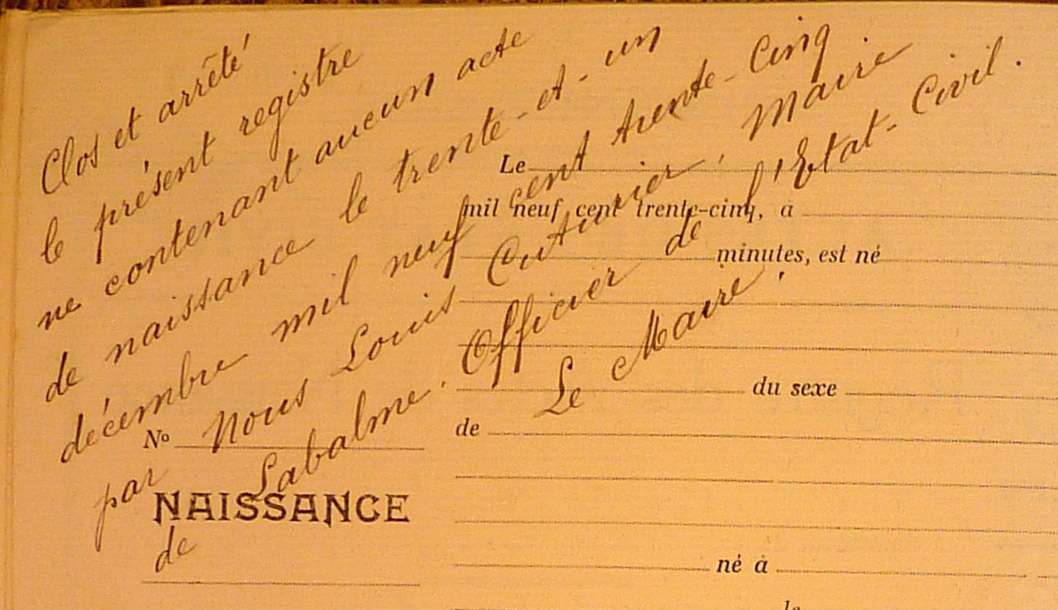 Clos et arrêté
le présent registre
ne contenant aucun acte
de naissance le trente-et-un
décembre mil neuf cent trente-cinq
par Nous Louis Cuturier, Maire
de Labalme. Officier de l'Etat-Civil.
Le Maire,
Le
mil neuf cent trente-cinq, à
minutes, est né
du sexe
No
de
NAISSANCE
né à
le